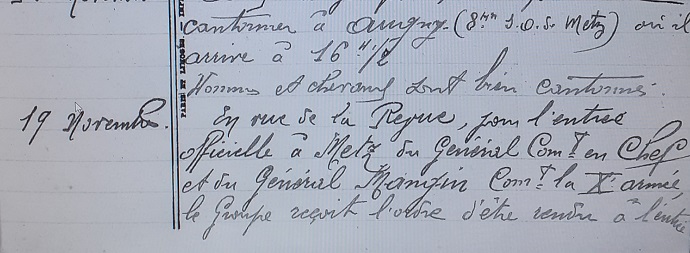 cantonner à Augny. (8 Km S.O. de Metz) où il
arrive à 16 H 1/2
Hommes et chevaux sont bien cantonnés.
19 Novembre.
En vue de la Revue, pour l'entrée
officielle à Metz du Général Comt en Chef
et du Général Mangin Comt la Xe armée,
le Groupe reçoit l'ordre d'être rendu à l'entrée